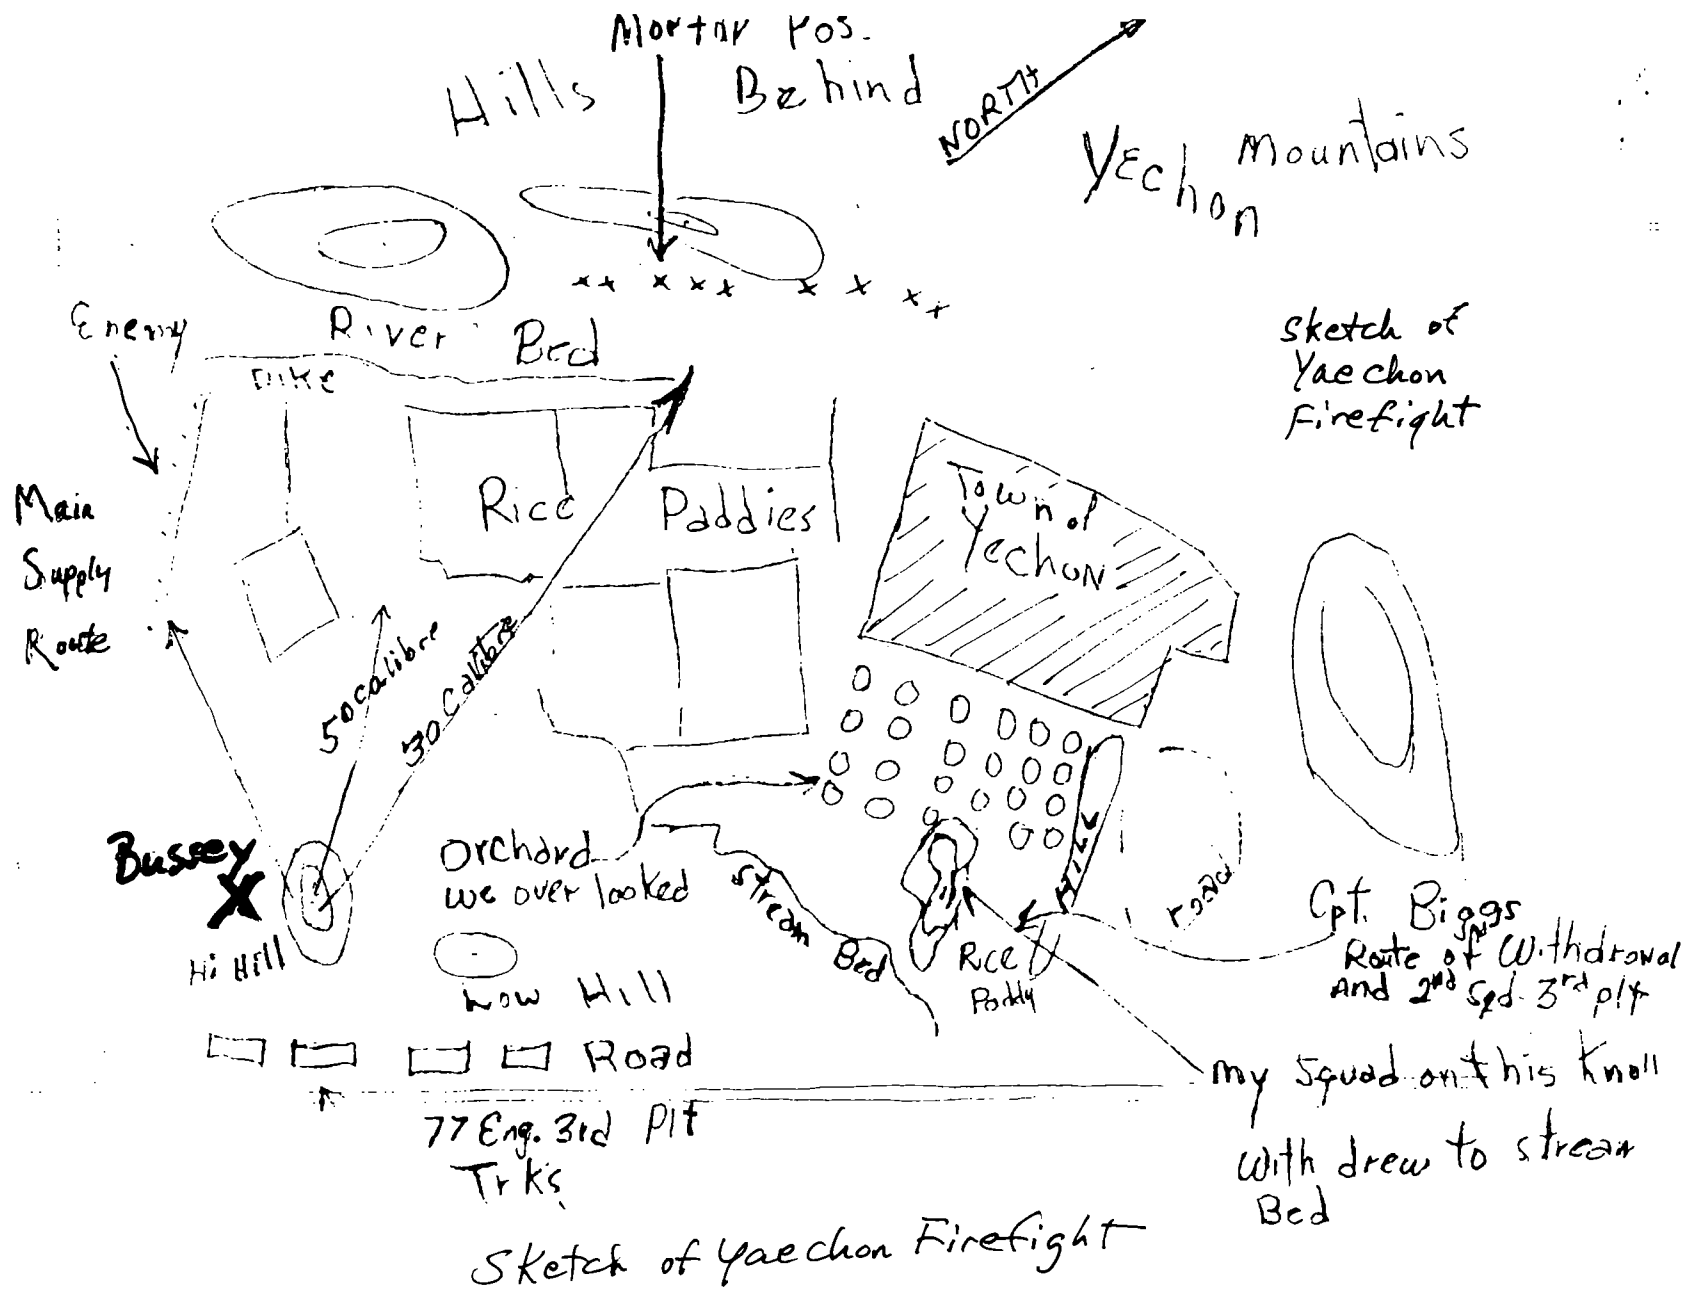 Mortar Pos.
Hills
Behind
NORTH
Yechon
Mountains
Enemy
River Bed
Dike
Sketch of
Yaechon
Firefight
Main
Supply
Route
Rice Paddies
Town of
Yechon
50 Calibre
30 Calibre
Bussey
X
Hi Hill
Orchard
we over looked
Stream Bed
Hill
road
Rice
Paddy
Cpt. Biggs
Route of Withdrawal
And 2nd Sqd. 3rd plt
Low Hill
Road
My Squad on this Knoll
With drew to stream
Bed
77 Eng. 3rd Plt
Trks
Sketch of Yaechon Firefight